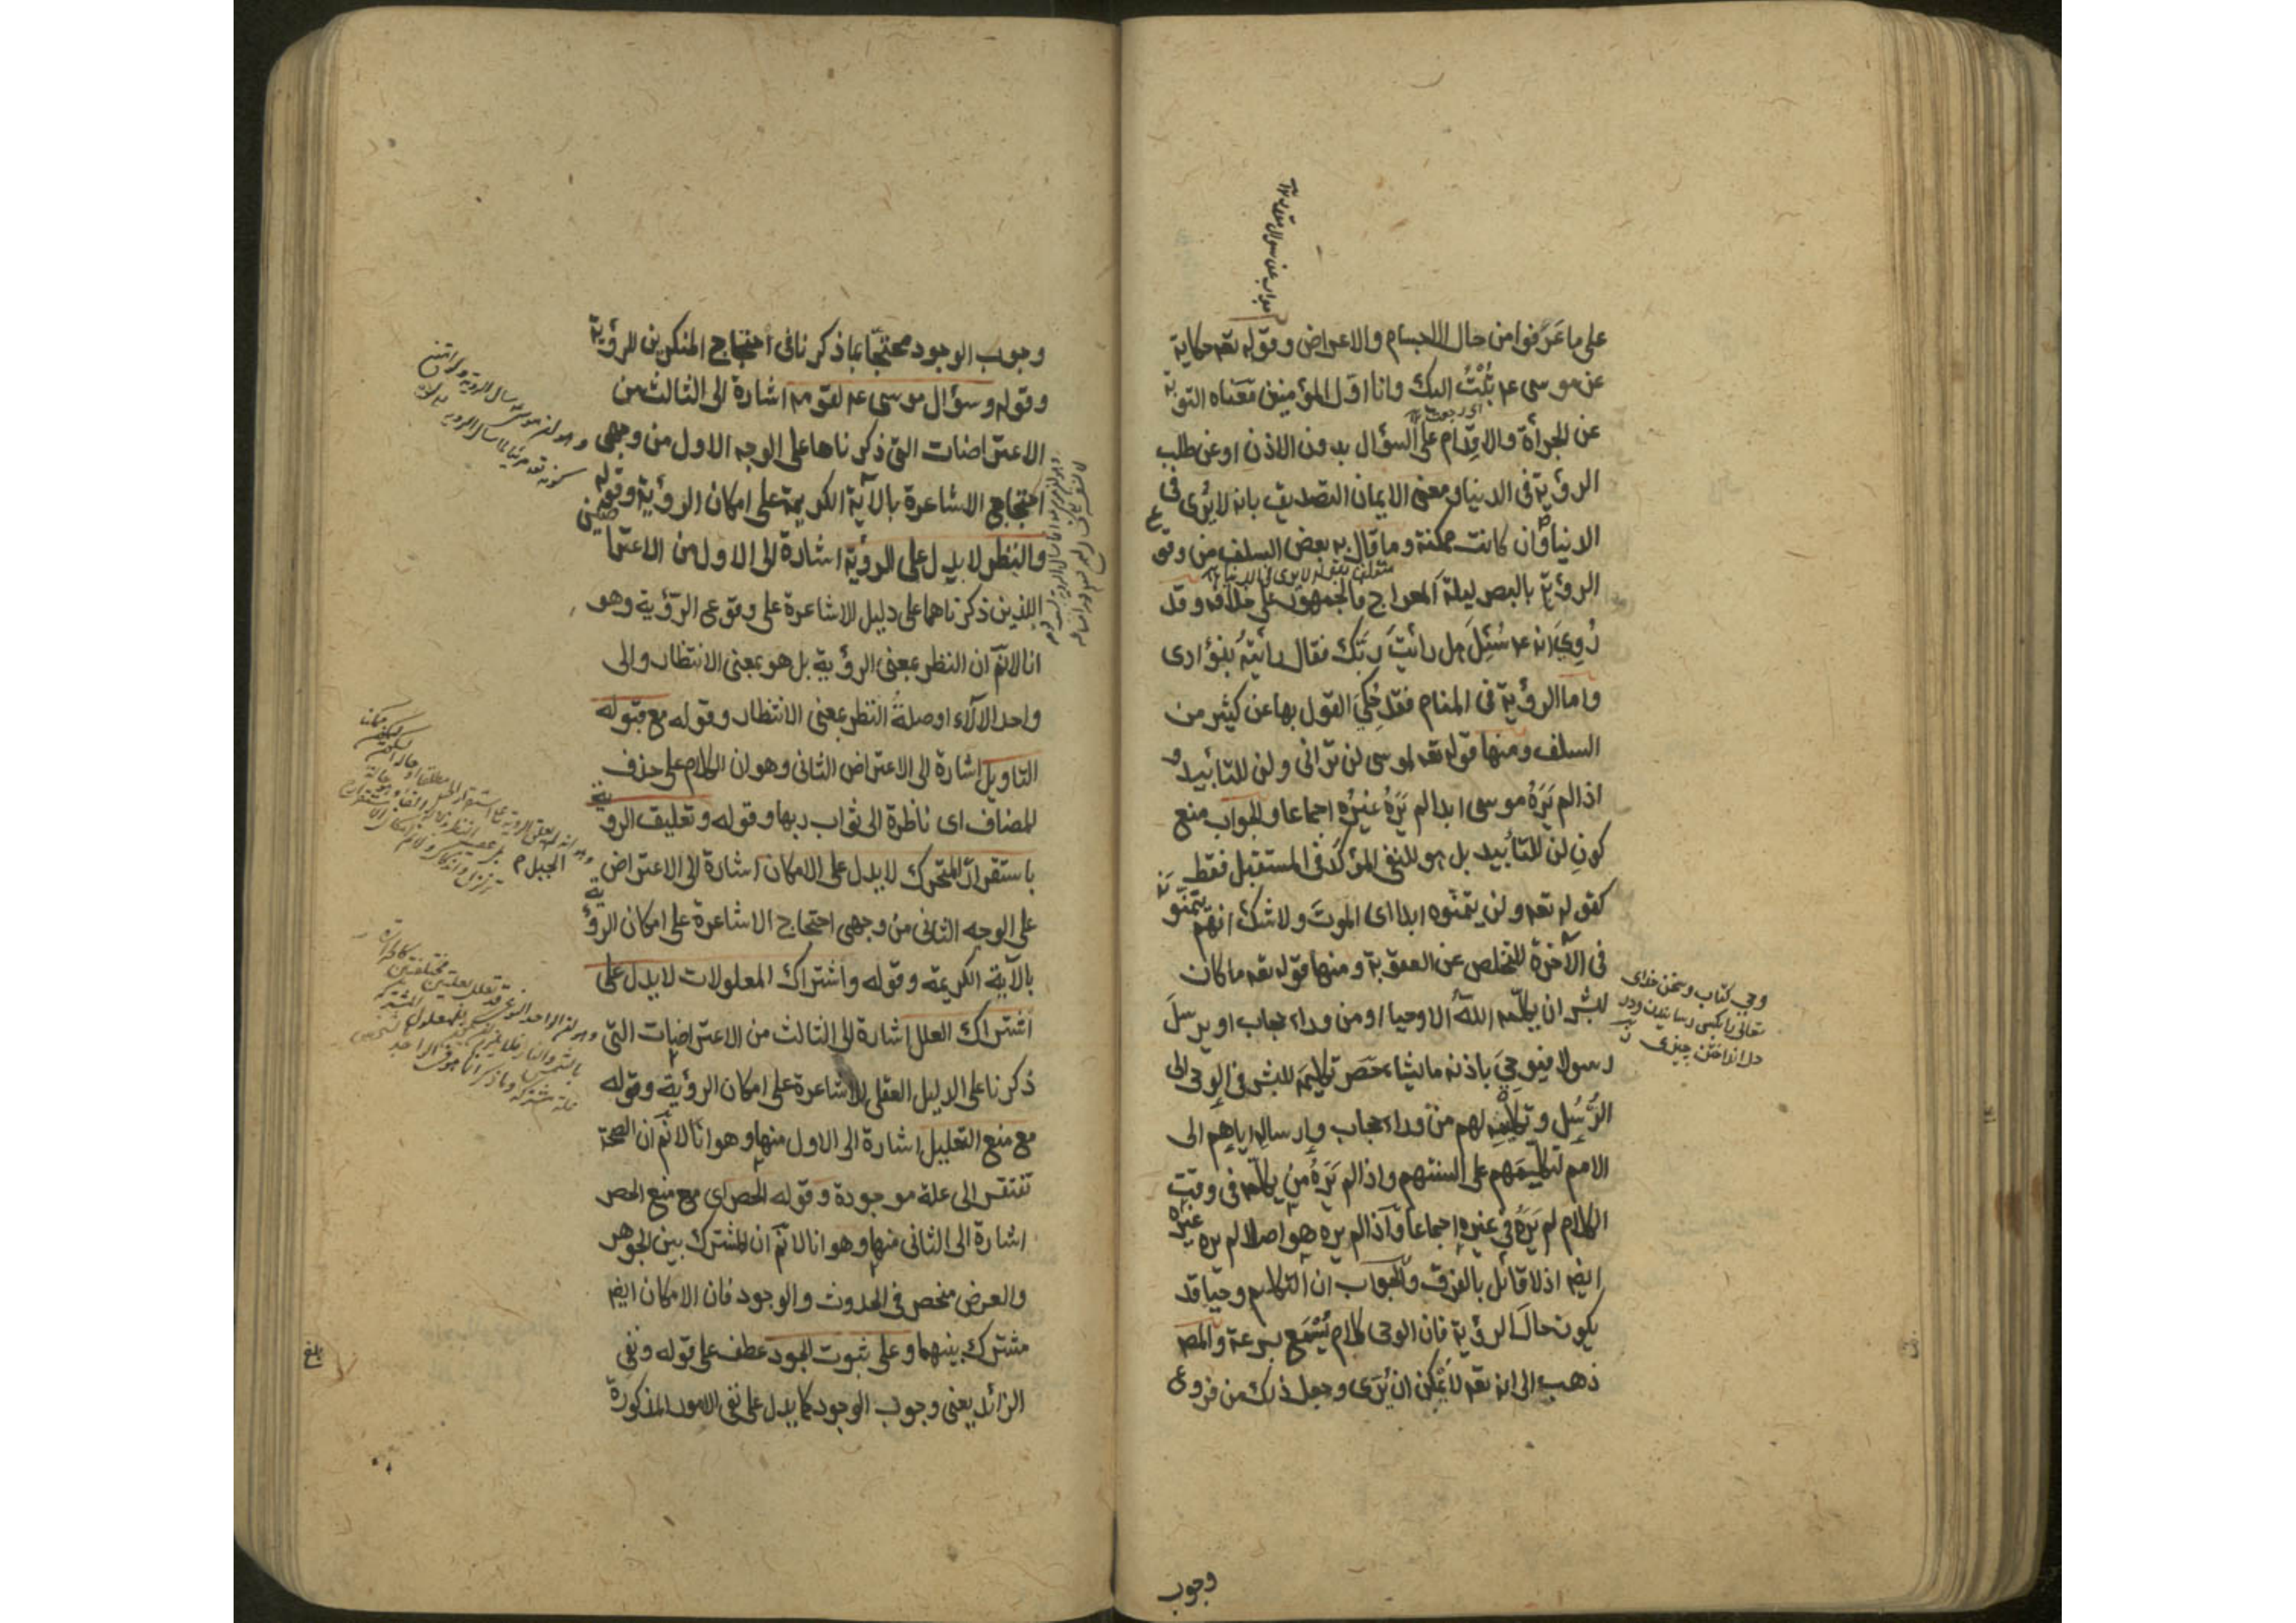 جواب عن سوال مقدر ١٢
على ما عَرَفوا من حال الاجسام والاعراض وقوله تعه حكاية
عن موسى عم تُبْتُ اليك وانا اول المؤمنين مَعناه التوبة
اى رجعت ١٢
عن الجرأة والاقدام على السؤال بدون الاذن او عن طلب
الرؤية فى الدنيا ومعنى الايمان التصديق بانه لا يُرى فى
الدنيا وان كانت ممكنة وما قال به بعض السلف من وقوع
متعلق بقوله لا يرى فى الدنيا ١٢
الرؤية بالبصر ليلة المعراج فالجمهور على خلافه وقد
رُوِيَ انه عم سُئِلَ هل رأيتَ ربَّك فقال رأيتُه بفؤادى
واما الرؤية فى المنام فقد حُكِيَ القول بها عن كثير من
السلف ومنها قوله تعه لموسى لن ترانى ولن للتأبيد و
اذا لم يَرَهُ موسى ابدا لم يَرَهُ غيرُه اجماعا والجواب منع
كونِ لن للتأبيد بل هو للنفى المؤكد فى المستقبل فقط
كقوله تعه ولن يتمنوه ابدا اى الموتَ ولا شك انهم يتمنونه
فى الآخرة للتخلص عن العقوبة ومنها قوله تعه ما كان
لبشر ان يكلّمه اللهُ الا وحيا او من وراء حجاب او يرسلَ
رسولا فيوحِيَ باذنه ما يشاء حَصَر تكليمَه للبشر فى الوحى الى
الرُّسُل وتكليمِه لهم من وراء حجاب وإرسالِه اياهم الى
الامم لتكليمهم على السنتهم واذا لم يَرَهُ من يكلمه فى وقت
الكلام لم يَرَهُ فى غيره اجماعا واذا لم يره هو اصلا لم يره غيرُه
ايضا اذ لا قائل بالفرق والجواب ان التكليم وحيا قد
يكون حالَ الرؤية فان الوحى كلام يُسْمَع بسرعة والمصـ
ذهب الى انه تعه لا يمكن ان يُرَى وجعل ذلك من فروع
وحي كتاب وسخن خداى
تعالى را بكسى رسانيدن ودر
دل انداختن چيزى
وجوب
وجوب الوجود محتجّا بما ذكرنا فى احتجاج المنكرين للرؤية
وقوله وسؤال موسى عم لقومه اشارة الى الثالث من
الاعتراضات التى ذكرناها على الوجه الاول من وجهى
احتجاج الاشاعرة بالآية الكريمة على امكان الرؤية وقوله
والنظر لا يدل على الرؤية اشارة الى الاول من الاعتراضين
اللذين ذكرناهما على دليل الاشاعرة على وقوع الرؤية وهو
انا لا نّم ان النظر بمعنى الرؤية بل هو بمعنى الانتظار والى
واحد الآلاء او صلةُ النظر بمعنى الانتظار وقوله مع قبوله
التاويل اشارة الى الاعتراض الثانى وهو ان الكلام على حذف
المضاف اى ناظرة الى ثواب ربها وقوله وتعليق الرؤية
باستقرار المتحرك لا يدل على الامكان اشارة الى الاعتراض
على الوجه الثانى من وجهى احتجاج الاشاعرة على امكان الرؤية
بالآية الكريمة وقوله واشتراك المعلولات لا يدل على
اشتراك العلل اشارة الى الثالث من الاعتراضات التى
ذكرنا على الدليل العقلى للاشاعرة على امكان الرؤية وقوله
مع منع التعليل اشارة الى الاول منها وهو انا لا نّم ان الصحة
تفتقر الى علة موجودة وقوله الحصر اى مع منع الحصر
اشارة الى الثانى منها وهو انا لا نّم ان المشترك بين الجوهر
والعرض منحصر فى الحدوث والوجود فان الامكان ايضا
مشترك بينهما وعلى ثبوت الجود عطف على قوله ونفى
الزائد يعنى وجوب الوجود كما يدل على نفى الامور المذكورة
بلغ